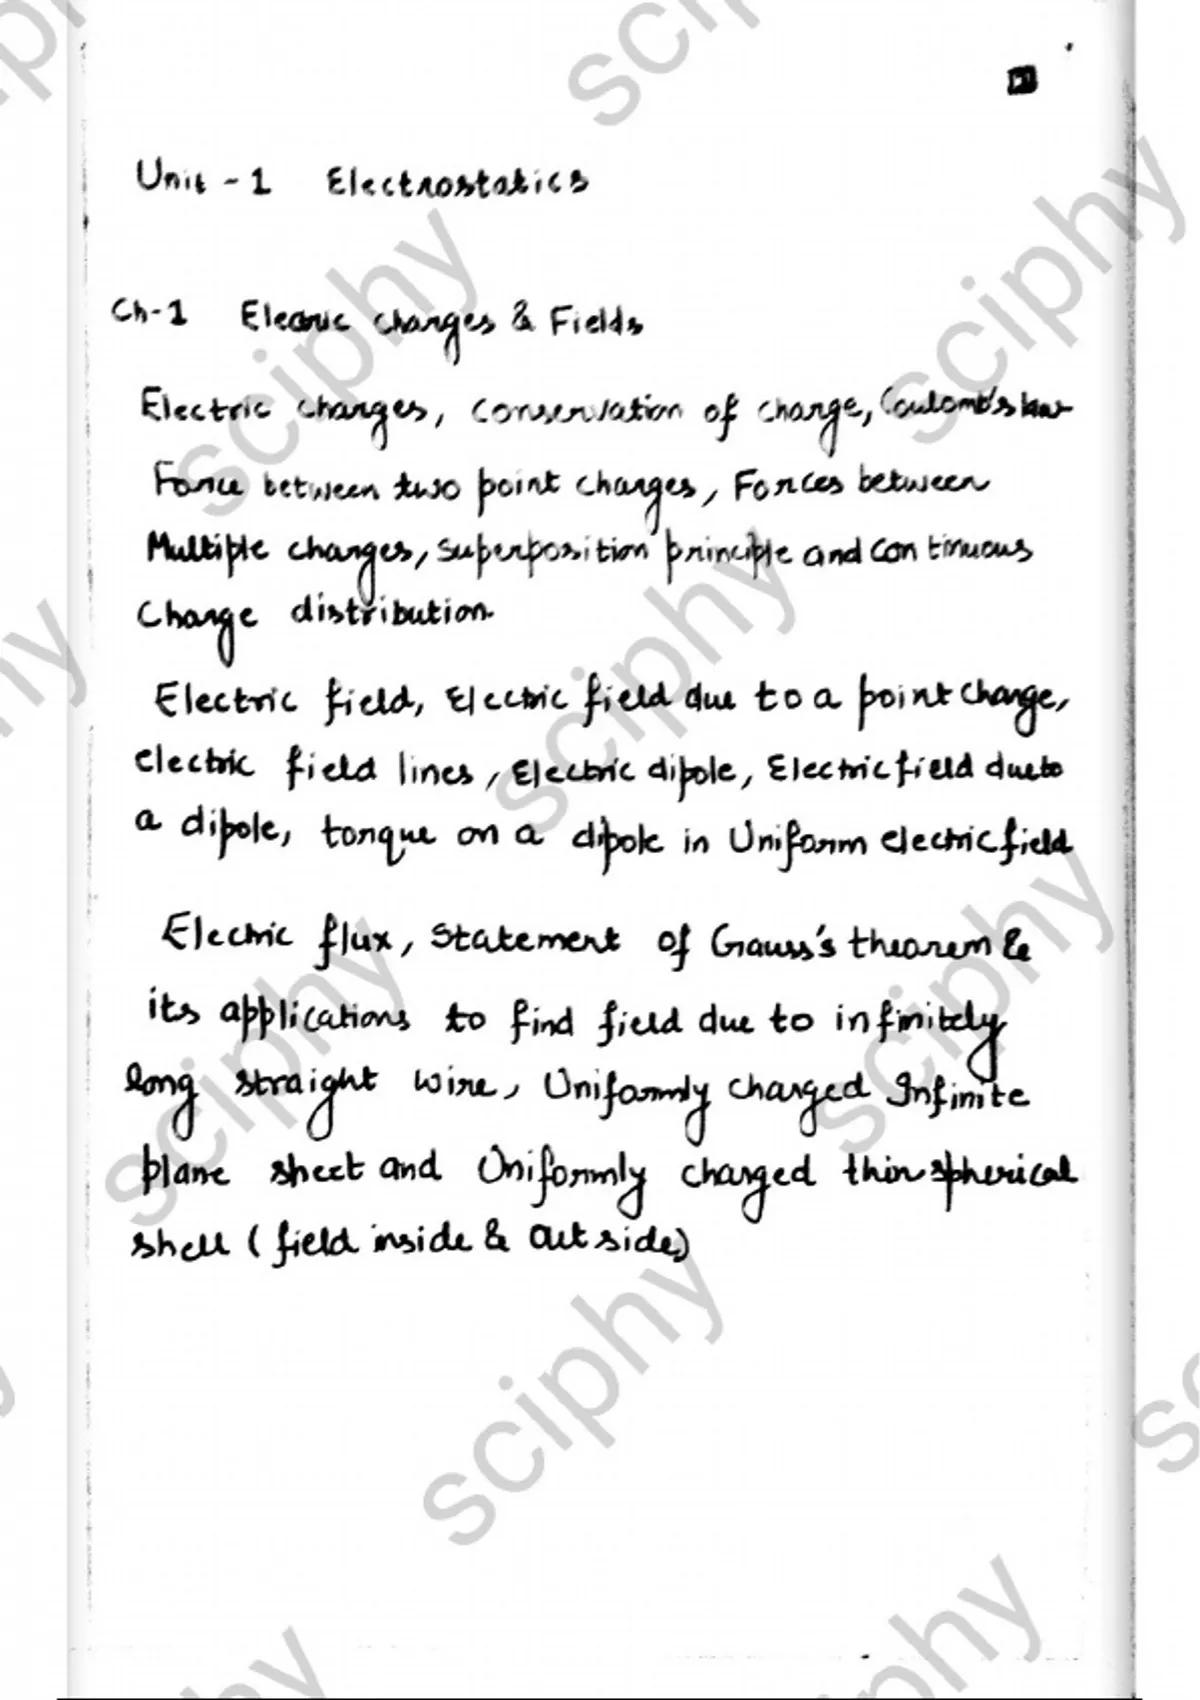 Unit - 1 Electrostatics
Ch-1 Electric charges & Fields
Electric charges, Conservation of charge, Coulomb's law
Force between two point charges, Forces between
Multiple charges, superposition principle and continuous
Charge distribution.
Electric field, Electric field due to a point charge,
electric field lines, Electric dipole, Electric field due to
a dipole, torque on a dipole in Uniform electric field
Electric flux, statement of Gauss's theorem &
its applications to find field due to infinitely
long straight wire, Uniformly charged Infinite
plane sheet and Uniformly charged thin spherical
shell (field inside & outside)
sciphy
sciphy
sciphy
sciphy
sciphy
sciphy
sciphy
sciphy